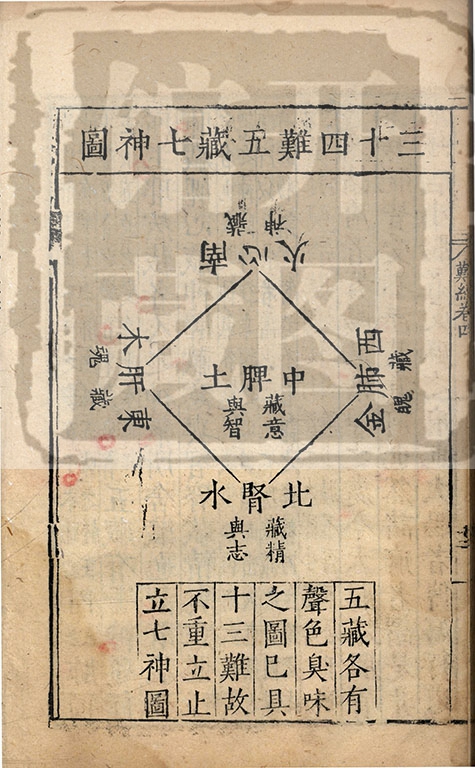 三十四難五藏七神圖
難經卷四
南心火
藏神
東肝木
藏魂
中脾土
藏意
與智
西肺金
藏魄
北腎水
藏精
與志
五藏各有
聲色臭味
之圖巳具
十三難故
不重立止
立七神圖